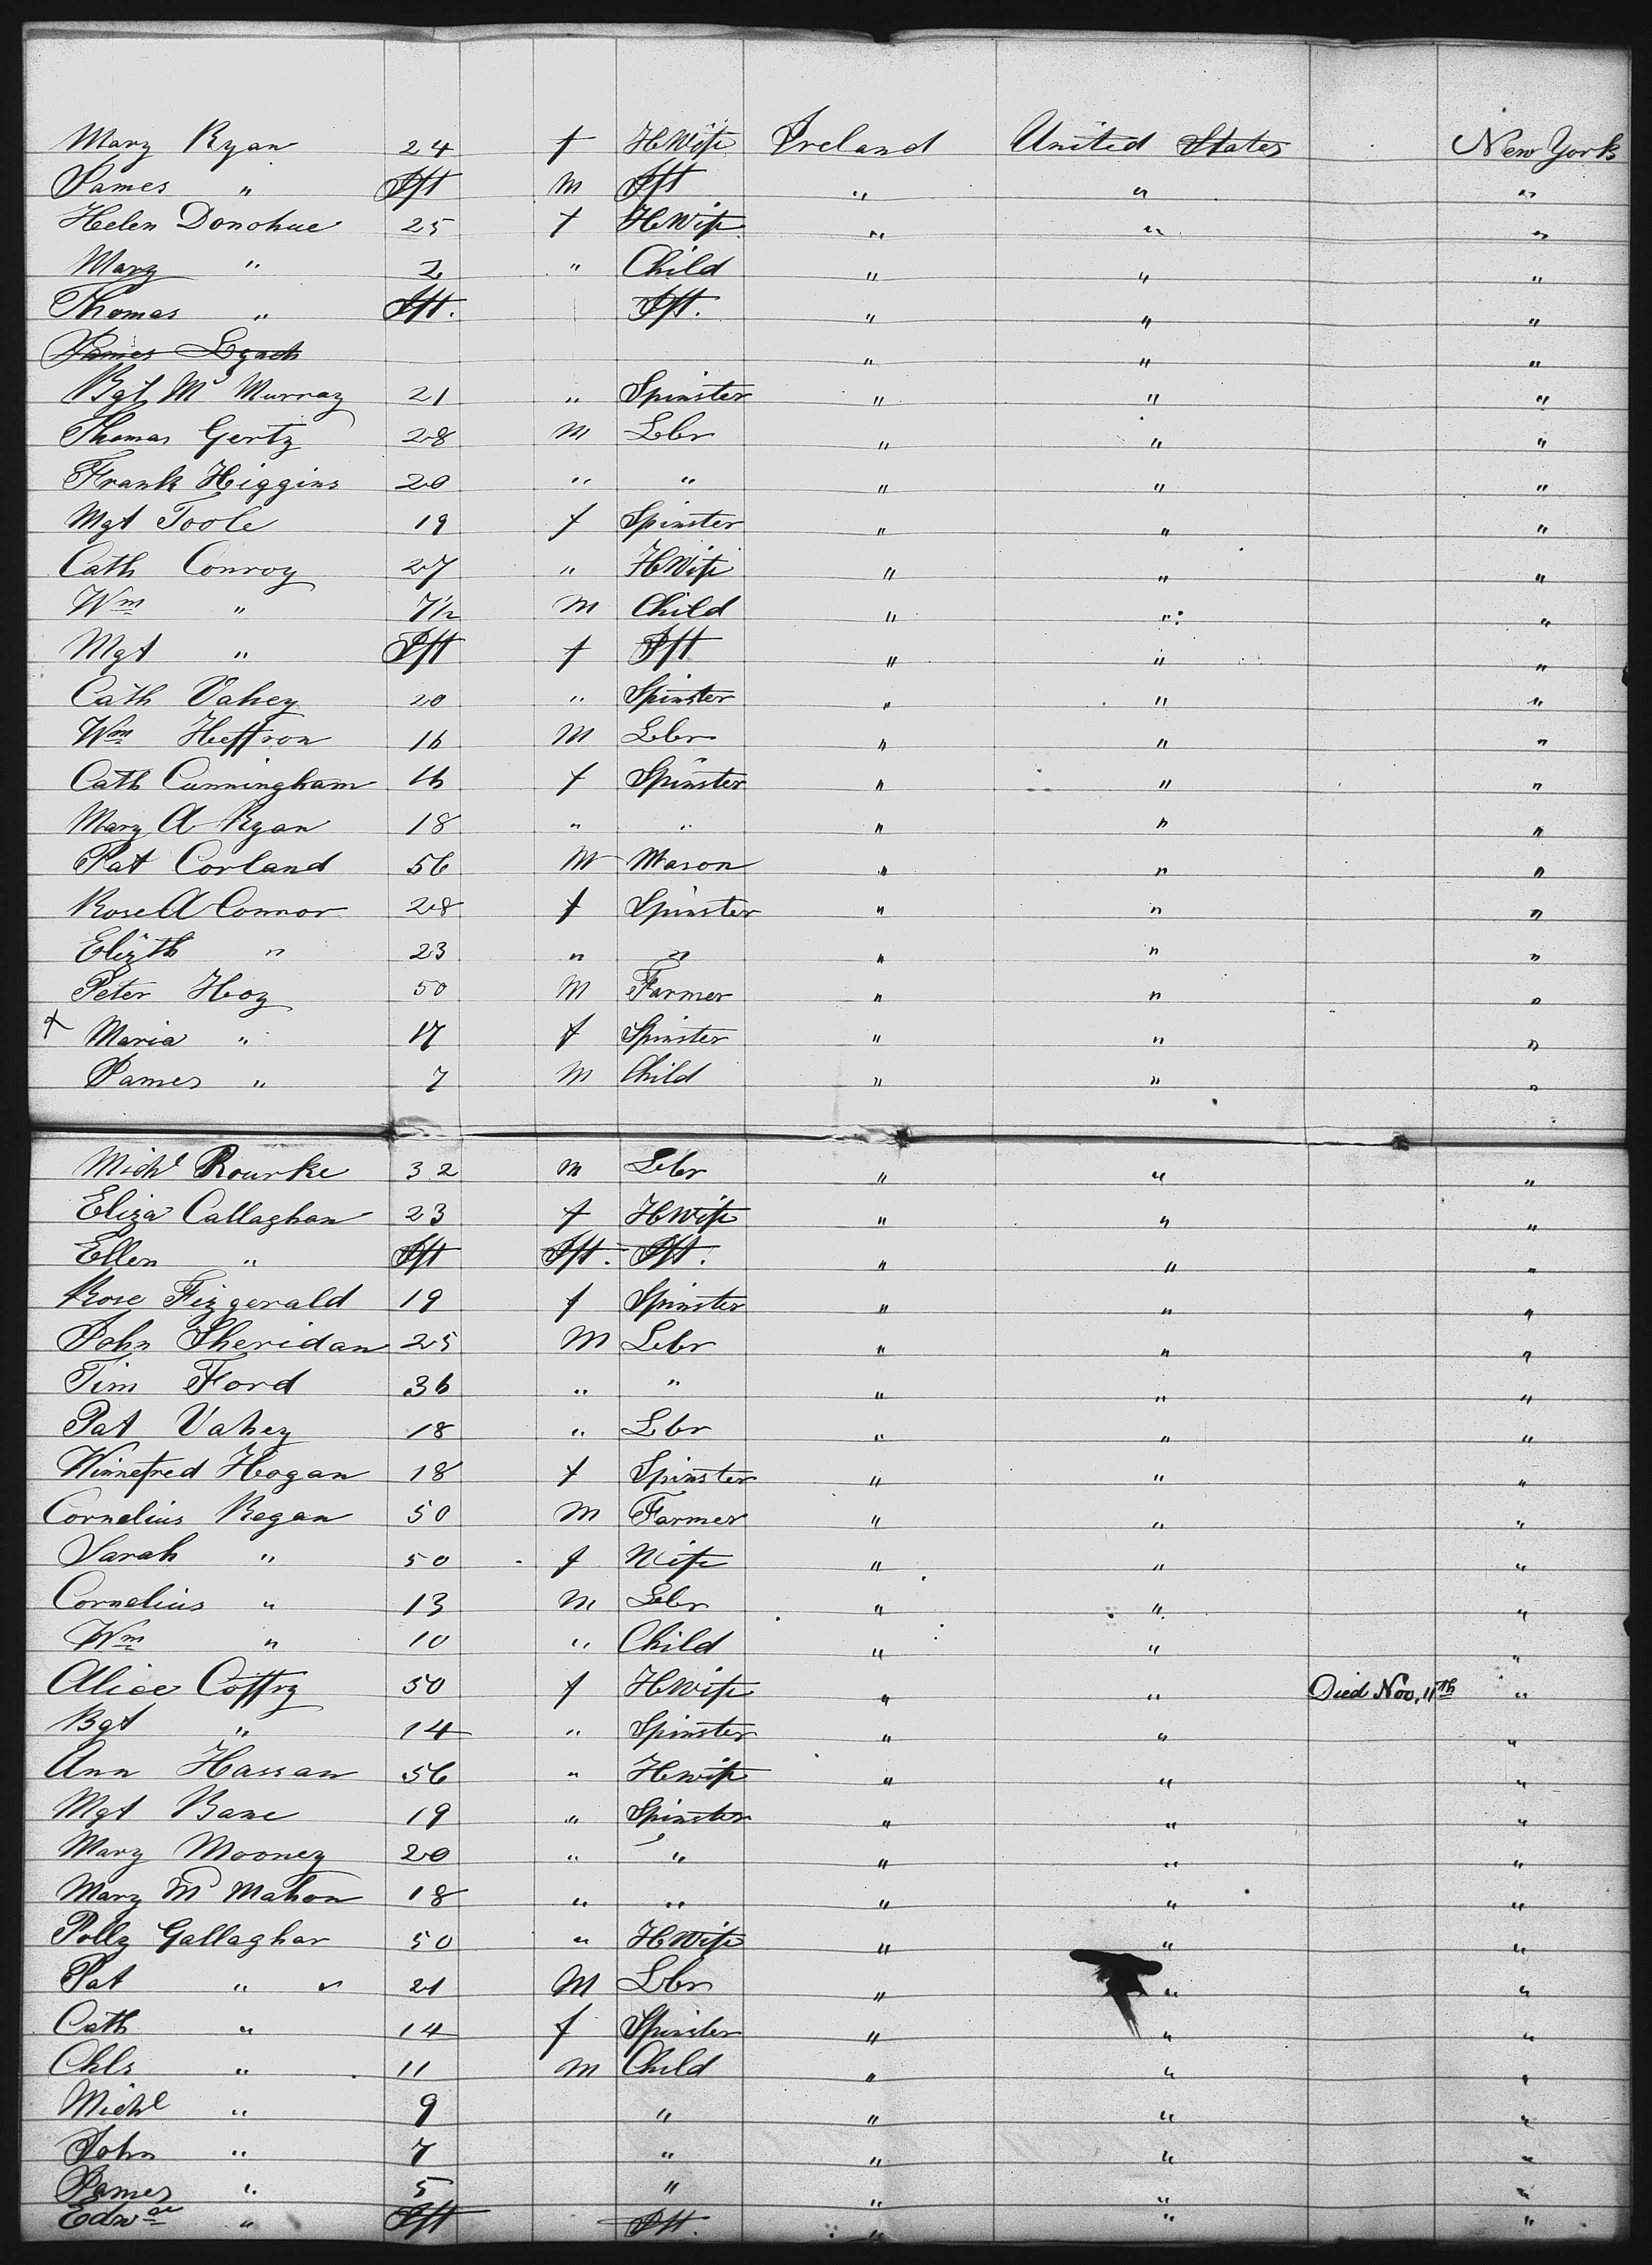 Mary Ryan 24 f HWife Ireland United States New York
James " Ift m Ift " " "
Helen Donohue 25 f HWife " " "
Mary " 2 " Child " " "
Thomas " Ift. Ift. " " "
James Lynch " " "
Bgt Mc Murray 21 " Spinster " " "
Thomas Gerty 28 m Lbr " " "
Frank Higgins 20 " " " " "
Mgt Toole 19 f Spinster " " "
Cath Conroy 27 " HWife " " "
Wm " 7½ m Child " " "
Mgt " Ift f Ift " " "
Cath Vahey 20 " Spinster " " "
Wm Heffron 16 m Lbr " " "
Cath Cunningham 16 f Spinster " " "
Mary A Ryan 18 " " " " "
Pat Corland 56 m Mason " " "
Rose A Connor 28 f Spinster " " "
Elizth " 23 " " " " "
Peter Hoy 50 m Farmer " " "
x Maria " 17 f Spinster " " "
James " 7 m Child " " "
Michl Rourke 32 m Lbr " " "
Eliza Callaghan 23 f HWife " " "
Ellen " Ift Ift. Ift. " " "
Rose Fizgerald 19 f Spinster " " "
John Sheridan 25 m Lbr " " "
Tim Ford 36 " " " " "
Pat Vahey 18 " Lbr " " "
Winnefred Hogan 18 f Spinster " " "
Cornelius Regan 50 m Farmer " " "
Sarah " 50 f Wife " " "
Cornelius " 13 m Lbr " " "
Wm " 10 " Child " " "
Alice Coffry 50 f HWife " " Died Nov, 11th "
Bgt " 14 " Spinster " " "
Ann Hassan 56 " Hwife " " "
Mgt Bane 19 " Spinster " " "
Mary Mooney 20 " " " " "
Mary Mc Mahon 18 " " " " "
Polly Gallaghar 50 " HWife " " "
Pat " " 21 m Lbr " " "
Cath " 14 f Spinster " " "
Chls " 11 m Child " " "
Michl " 9 " " " "
John " 7 " " " "
James " 5 " " " "
Edwd " Ift Ift. " " "